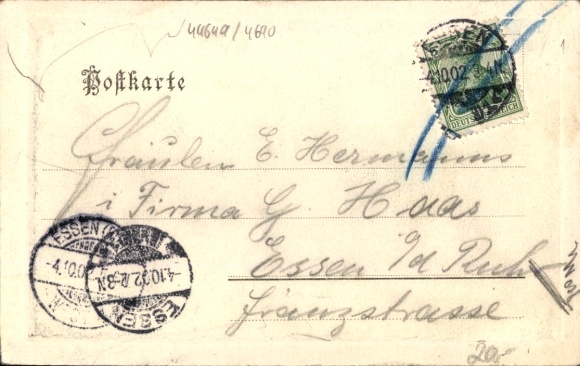 44649/4690
1
Postkarte
ESSEN
4.10.02.3-4N.
DEUTSCHES REICH
Fräulein E. Hermanns
i Firma G. Haas
Essen a/d Ruhr
Franzstrasse
ESSEN
4.10.02.2-3N
ESSEN
20,-